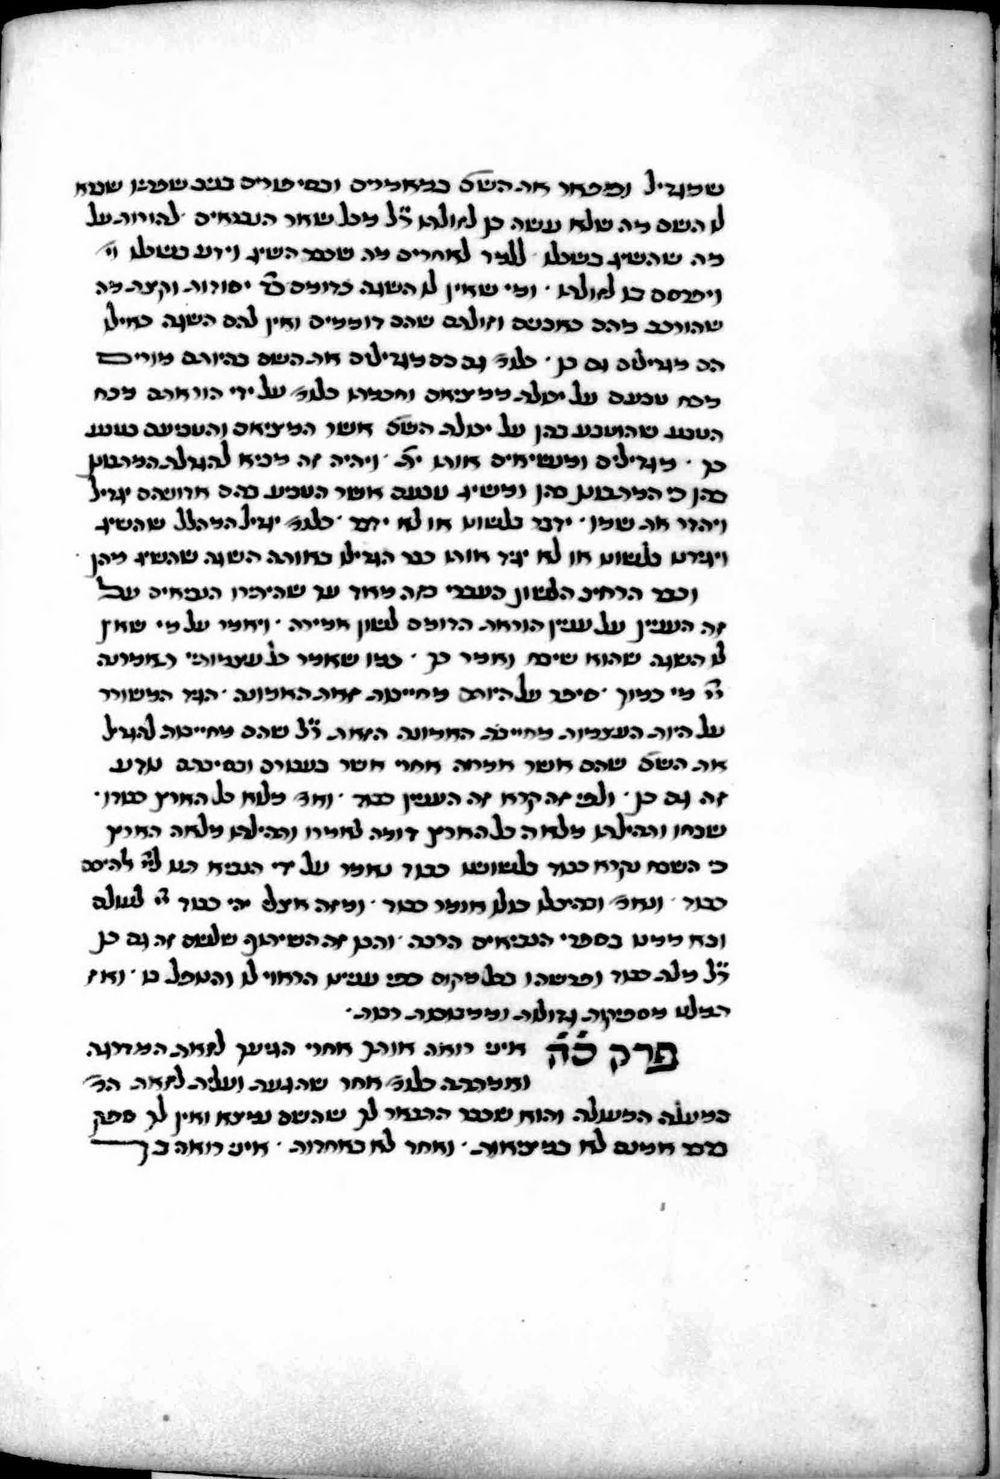 שמגדיל ומפאר את השם במאמרים ובסיפורים שנשא
לו השם מה שלא עשה כן לזולתו ר״ל מכל שאר הנבראים להורות על
מה שהשיג בשכלו ללמד לאחרים מה שכבר השיג וידע בשכלו
ויפרסם בו לזולתו · ומי שאין לו השגה כדומם יסודות וקצת מה
שהורכב מהם כאבנים וזולתם שהם דוממים ואין להם השגה כאילו
הם מגדילים גם כן · כלומ׳ גם הם מגדילים את השם בהיותם מורים
מכח טבעם על יכולת ממציאם וחכמתו כלומ׳ על ידי הוראתם מכח
הטבע שהוטבע בהן על יכולת השם אשר המציאם והטביעם בטבע
כך · מגדילים ומנשיאים אותו ית׳ · ויהיה זה מביא להגדלת המתבונן
בהן כי המתבונן בהן ומשיג טבעם אשר הטבע בהם יגדיל
ויהדר את שמו · ידבר בלשונו או לא ידבר · כלומ׳ יגדיל המהלל שהשיג
ויגידנו בלשונו או לא יגיד אותו כבר הגדילו באותה השגה שהשיג מהן ·
וכבר הרחיב הלשון העברי בזה מאוד עד שהתירו הנביאים על
זה העניין על עניין הוראת הדומם לשון אמירה · ויאמר על מי שאין
לו השגה שהוא שיבח ואמר כך · כמו שאמר כל עצמותי תאמרנה
יי׳ מי כמוך · סיפר על היותם מחייבות זאת האמונה · הגיד המשורר
על היות העצמות מחייבות האמונה הזאת ר״ל שהם מחייבות להגדיל
את השם שהם אשר אמרוה אחרי אשר בעבורם ובסיבתם נודע
זה גם כן · ולפי זה קרא זה העניין כבוד · ואמ׳ מלוא כל הארץ כבודו ·
שבחו ותהילתו מלאה כל הארץ דומה לאמרו ותהילתו מלאה הארץ
כי השבח נקרא כבוד בלשוננו כבוד נאמר על ידי הנביא תנו ליי׳ אלהיכם
כבוד · ונאמ׳ ובהיכלו כולו אומר כבוד · ומזה אצלי יהי כבוד יי׳ לעולם
ובא ממנו בספרי הנביאים הרבה · והבן זה השיתוף שלשם זה גם כן
ר״ל מלת כבוד ופרשהו בכל מקום כפי עניינו הראוי לו והנופל בו · ואז
המלט מספיקות גדולות וממבוכות רבות ·
פרק כ״ח אינו רואה אותך אחרי הגיעך לזאת המדרגה
ואמתתה כלומ׳ אחר שהגעת ועלית לזאת המד׳
במעלה המעולה והוא שכבר התבאר לך שהשם נמצא ואין לך ספק
בדבר אמנם לא במציאות · ואחר לא באחדות · איני רואה בך